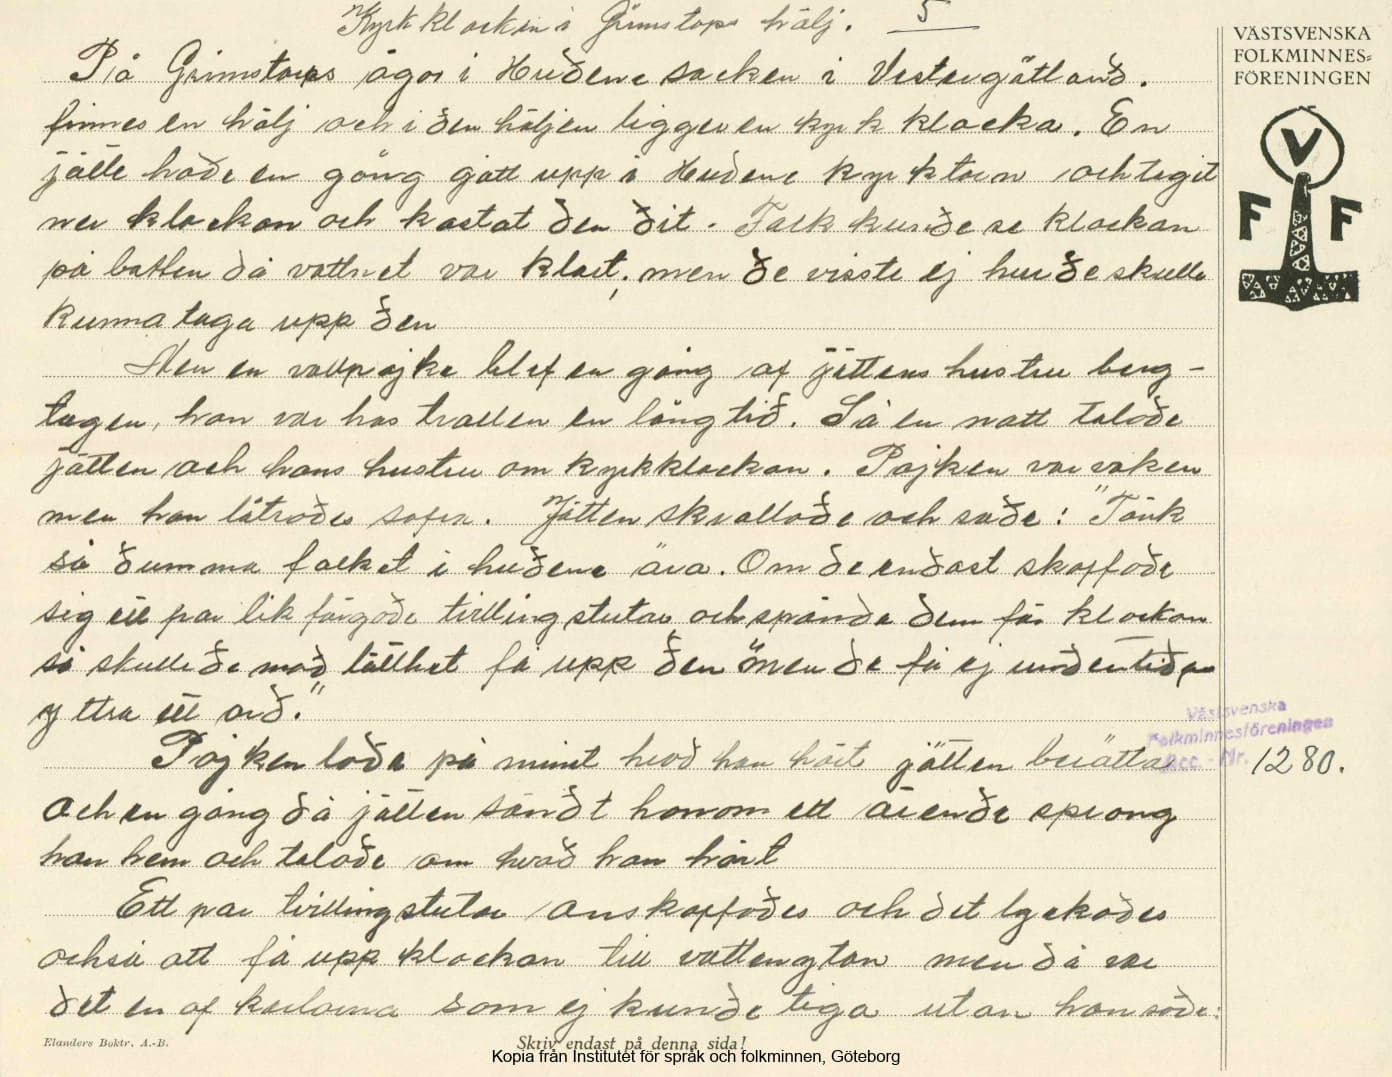 Kyrkklockan i Grimstorps hålj. 5
På Grimstorps ägor i Hudene socken i Vestergötland.
finnes en hålj och i den håljen ligger en kyrkklocka. En
jätte hade en gång gått upp i Hudene kyrktorn och tagit
ner klockan och kastat den dit. Folk kunde se klockan
på botten då vattnet var klart, men de visste ej hur de skulle
kunna taga upp den
Men en vallpojke blef en gång af jättens hustru berg-
tagen, han var hos trollen en lång tid. Så en natt talade
jätten och hans hustru om kyrkklockan. Pojken var vaken
men han låtsades sofva. Jätten skvallade och sade: "Tänk
så dumma folket i hudene ära. Om de endast skaffade
sig ett par lik färgade tvillingstutar och spände dem för klockan
så skulle de med lätthet få upp den men de få ej under tiden
yttra ett ord."
Pojken lade på minnet hvad han hört jätten berätta
och en gång då jätten sändt honom ett ärende sprang
han hem och talade om hvad han hört
Ett par tvillingstutar anskaffades och det lyckades
också att få upp klockan till vattenytan men då var
det en af karlarna som ej kunde tiga utan han sade:
Elanders Boktr. A.-B.
Skriv endast på denna sida!
Kopia från Institutet för språk och folkminnen, Göteborg
VÄSTSVENSKA
FOLKMINNES=
FÖRENINGEN
V
F F
Västsvenska
Folkminnesföreningen
Acc - Nr. 1280.